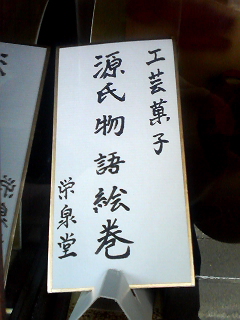 工芸菓子
源氏物語絵巻
栄泉堂